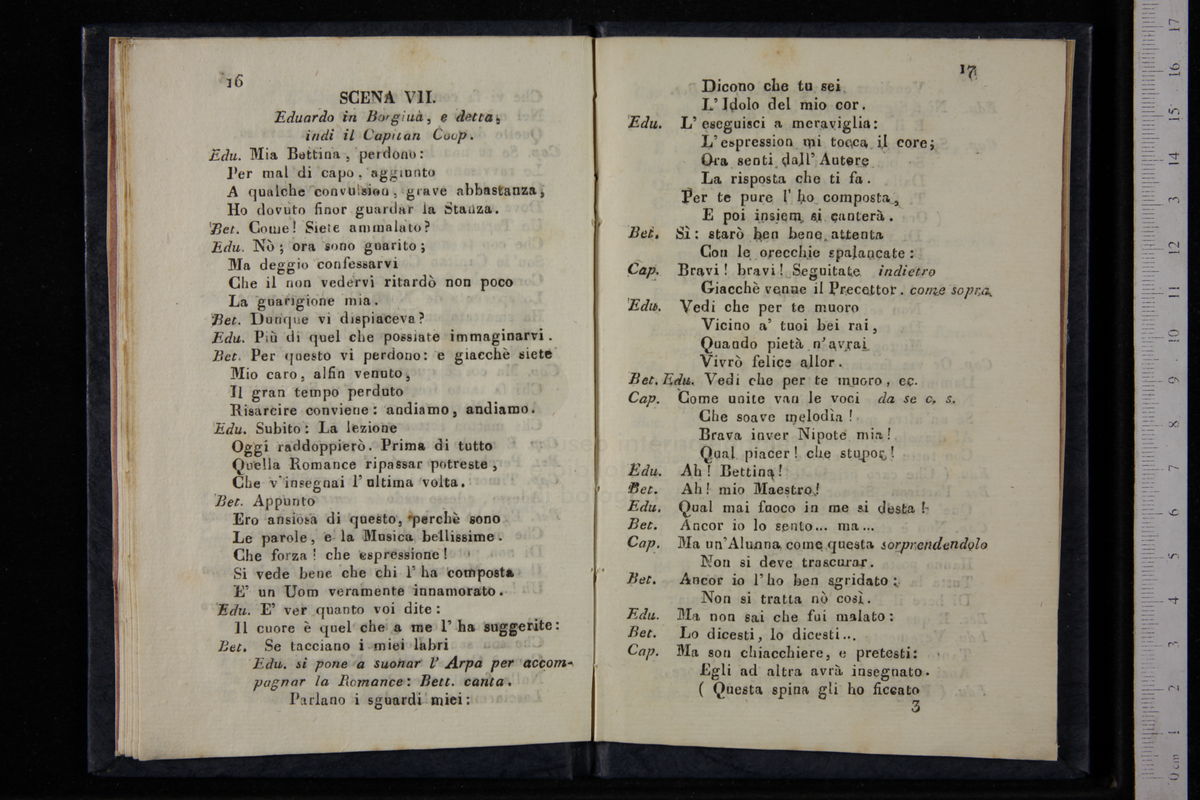 16
SCENA VII.
Eduardo in Borgiuà, e detta,
indi il Capitan Coop.
Edu. Mia Bettina, perdono:
Per mal di capo, aggiunto
A qualche convulsion, grave abbastanza,
Ho dovuto finor guardar la Stanza.
Bet. Come! Siete ammalato?
Edu. Nò; ora sono guarito;
Ma deggio confessarvi
Che il non vedervi ritardò non poco
La guarigione mia.
Bet. Dunque vi dispiaceva?
Edu. Più di quel che possiate immaginarvi.
Bet. Per questo vi perdono: e giacchè siete
Mio caro, alfin venuto,
Il gran tempo perduto
Risarcire conviene: andiamo, andiamo.
Edu. Subito: La lezione
Oggi raddoppierò. Prima di tutto
Quella Romance ripassar potreste,
Che v'insegnai l'ultima volta.
Bet. Appunto
Ero ansiosa di questo, perchè sono
Le parole, e la Musica bellissime.
Che forza! che espressione!
Si vede bene che chi l'ha composta
E' un Uom veramente innamorato.
Edu. E' ver quanto voi dite:
Il cuore è quel che a me l'ha suggerite:
Bet. Se tacciano i miei labri
Edu. si pone a suonar l'Arpa per accom-
pagnar la Romance: Bett. canta.
Parlano i sguardi miei:
17
Dicono che tu sei
L'Idolo del mio cor.
Edu. L'eseguisci a meraviglia:
L'espression mi tocca il core;
Ora senti dall'Autore
La risposta che ti fa.
Per te pure l'ho composta,
E poi insiem si canterà.
Bet. Sì: starò ben bene attenta
Con le orecchie spalancate:
Cap. Bravi! bravi! Seguitate indietro
Giacchè venne il Precettor. come sopra.
Edu. Vedi che per te muoro
Vicino a' tuoi bei rai,
Quando pietà n'avrai
Vivrò felice allor.
Bet. Edu. Vedi che per te muoro, ec.
Cap. Come unite van le voci da se c. s.
Che soave melodìa!
Brava inver Nipote mia!
Qual piacer! che stupor!
Edu. Ah! Bettina!
Bet. Ah! mio Maestro!
Edu. Qual mai fuoco in me si desta!
Bet. Ancor io lo sento... ma...
Cap. Ma un'Alunna come questa sorprendendolo
Non si deve trascurar.
Bet. Ancor io l'ho ben sgridato:
Non si tratta nò così.
Edu. Ma non sai che fui malato:
Bet. Lo dicesti, lo dicesti...
Cap. Ma son chiacchiere, e pretesti:
Egli ad altra avrà insegnato.
( Questa spina gli ho ficcato
3